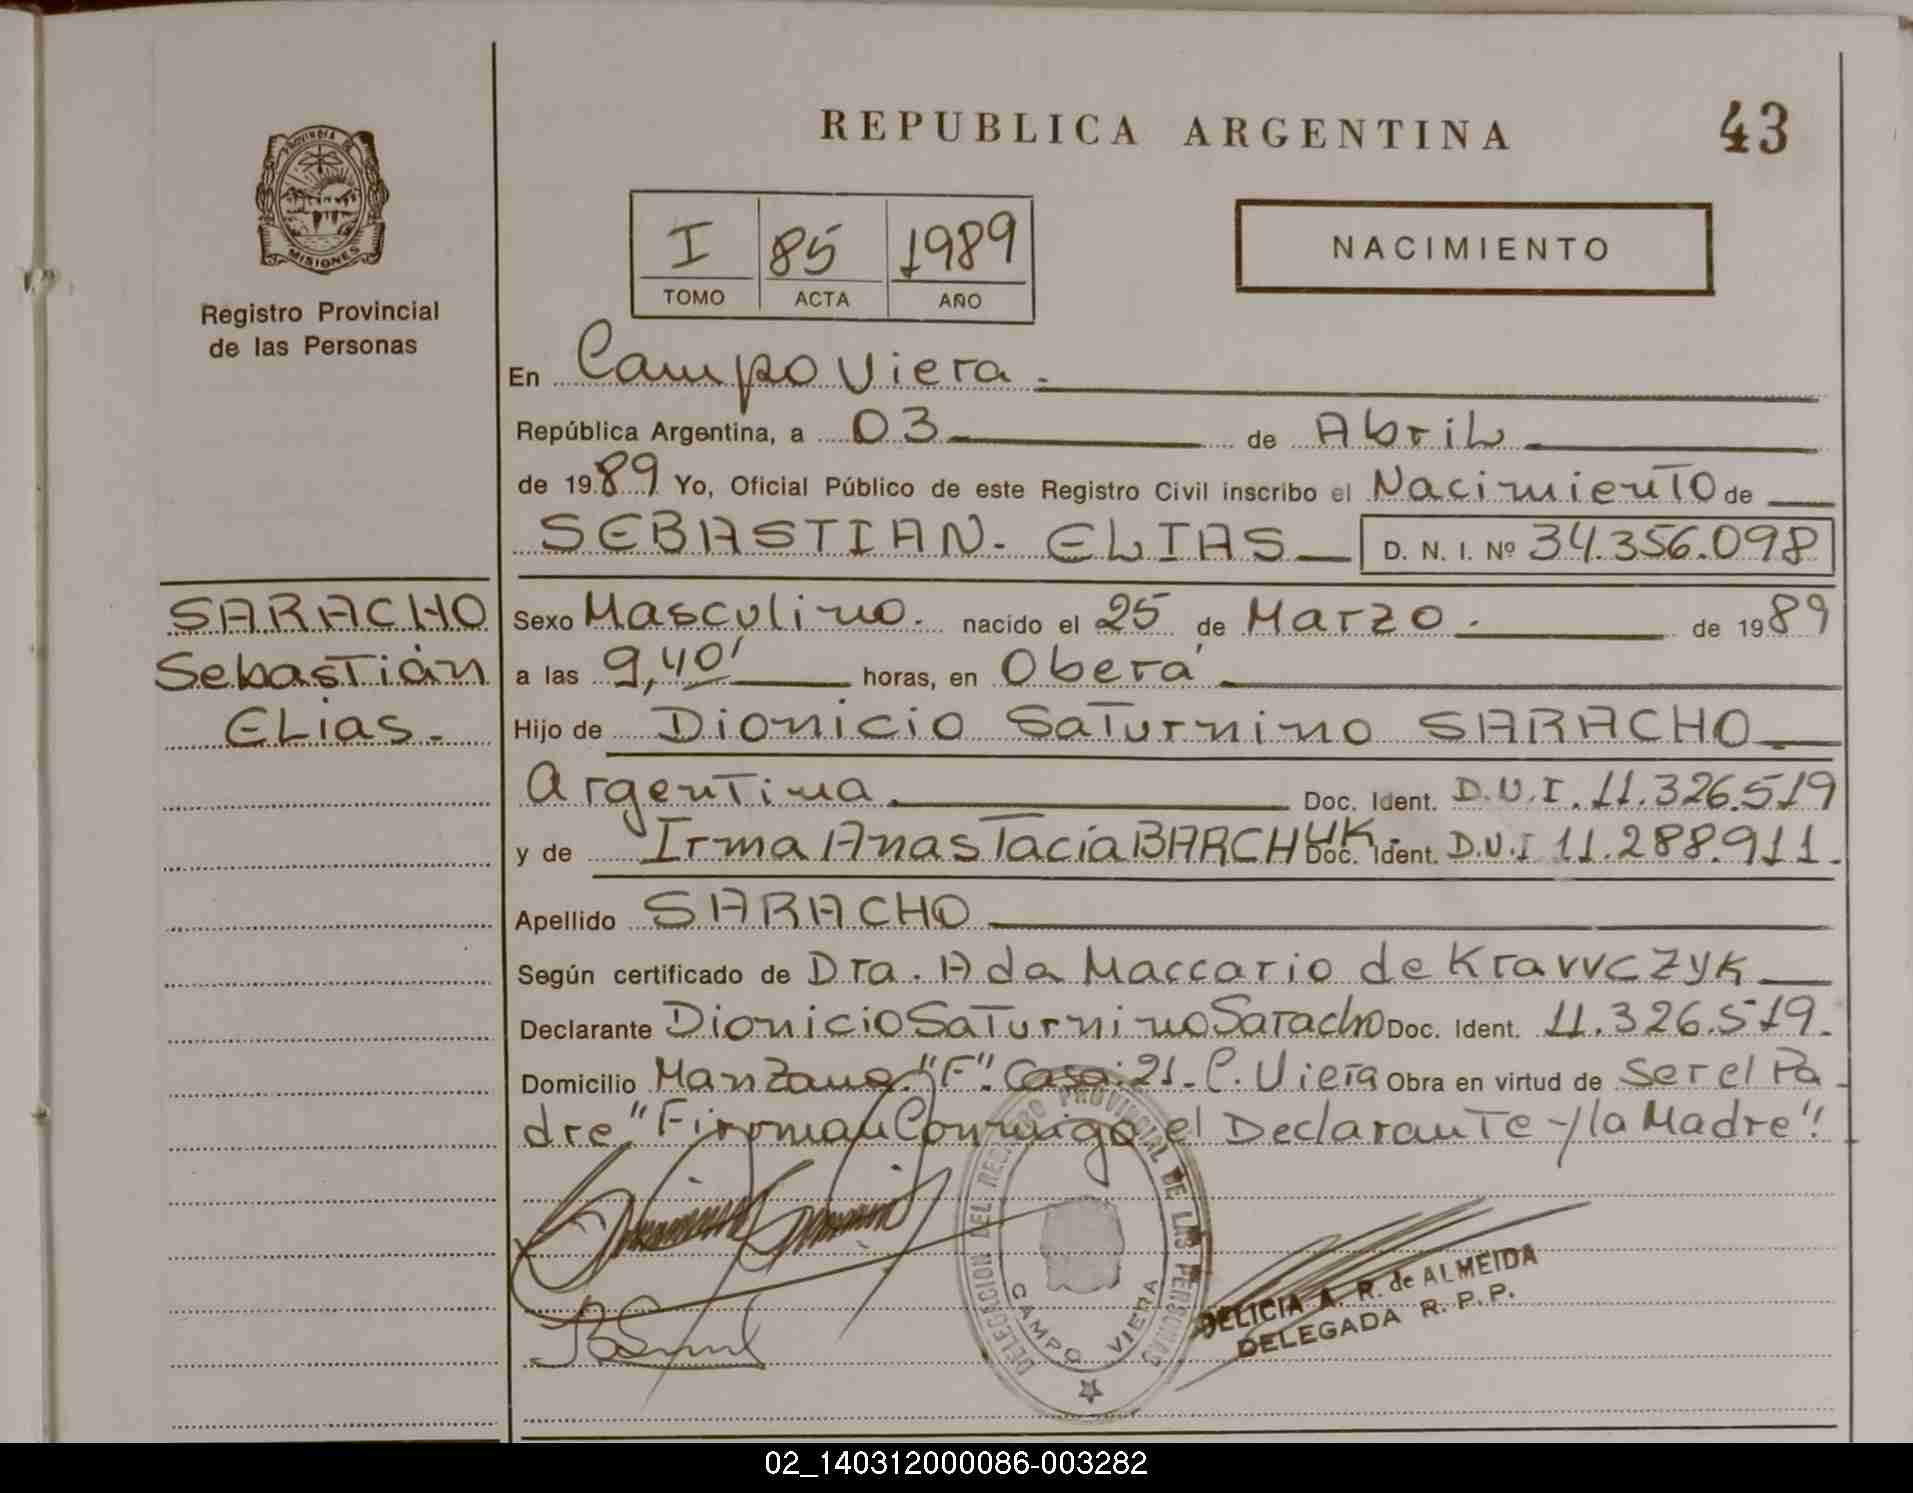 REPUBLICA ARGENTINA
43
PROVINCIA DE
MISIONES
Registro Provincial
de las Personas
I 85 1989
TOMO ACTA AÑO
NACIMIENTO
En Campo Viera.
República Argentina, a 03 de Abril
de 1989 Yo, Oficial Público de este Registro Civil inscribo el Nacimiento de
SEBASTIAN. ELIAS D. N. I. Nº 34.356.098
SARACHO
Sebastián
Elias.
Sexo Masculino. nacido el 25 de Marzo. de 1989
a las 9,40' horas, en Oberá
Hijo de Dionicio Saturnino SARACHO
Argentina Doc. Ident. D.N.I. 11.326.519
y de Irma Anastacia BARCHUK. Doc. Ident. D.N.I 11.288.911.
Apellido SARACHO
Según certificado de Dra. Ada Maccario de Krawczyk
Declarante Dionicio Saturnino Saracho Doc. Ident. 11.326.519.
Domicilio Manzana "F". Casa: 21. C. Viera Obra en virtud de ser el Pa
dre, "Firman Conmigo el Declarante y la Madre"!
DELEGACION DEL REGISTRO PROVINCIAL DE LAS PERSONAS
CAMPO VIERA
DELICIA A. R. de ALMEIDA
DELEGADA R. P. P.
02_140312000086-003282